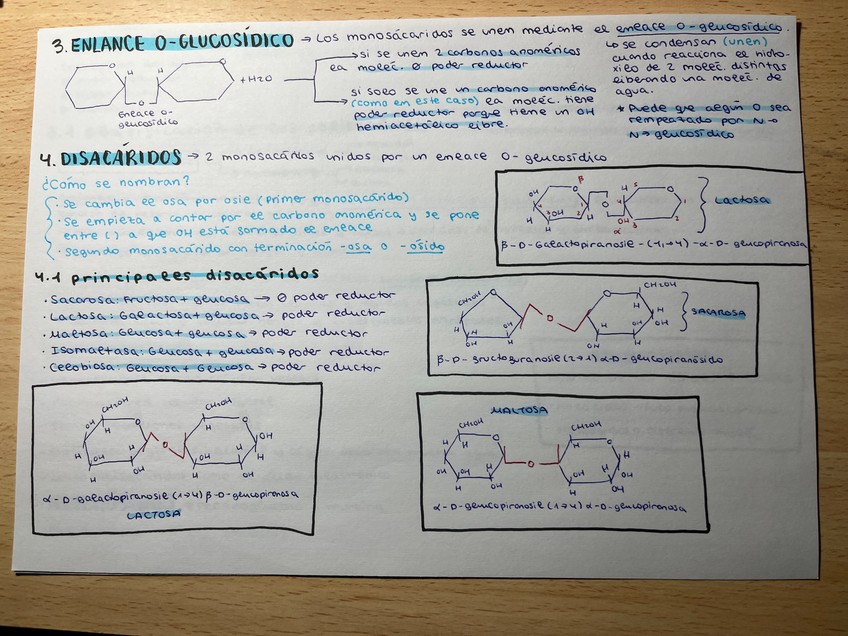 3. ENLANCE O-GLUCOSÍDICO → Los monosácaridos se unen mediante el enlace O-glucosídico.
↳ se condensan (unen)
cuando reacciona el hidro-
xilo de 2 moléc. distintas
liberando una moléc. de
agua.
* Puede que según O sea
remplazado por N →
N → glucosídico
→ si se unen 2 carbonos anoméricos
la moléc. Ø poder reductor
si solo se une un carbono anomérico
(como en este caso) la moléc. tiene
poder reductor porque tiene un OH
hemiacetálico libre.
H H
O
+H2O
Enlace O-
glucosídico
4. DISACÁRIDOS → 2 monosacáridos unidos por un enlace O-glucosídico
¿Cómo se nombran?
· Se cambia el osa por osil (primer monosacárido)
· Se empieza a contar por el carbono anomérico y se pone
entre ( ) a que OH está formado el enlace
· Segundo monosacárido con terminación -osa o -ósido
Lactosa
β-D-Galactopiranosil-(1→4)-α-D-glucopiranosa
4.1 principales disacáridos
· Sacarosa: Fructosa + glucosa → Ø poder reductor
· Lactosa: Galactosa + glucosa → poder reductor
· Maltosa: Glucosa + glucosa → poder reductor
· Isomaltasa: Glucosa + glucosa → poder reductor
· Celobiosa: Glucosa + Glucosa → poder reductor
CH2OH O H OH
CH2OH O H OH
SACAROSA
β-D-fructofuranosil (2→1) α-D-glucopiranósido
CH2OH O H OH
CH2OH O H OH
α-D-galactopiranosil (1→4) β-D-glucopiranosa
LACTOSA
MALTOSA
CH2OH O H OH
CH2OH O H OH
α-D-glucopiranosil (1→4) α-D-glucopiranosa